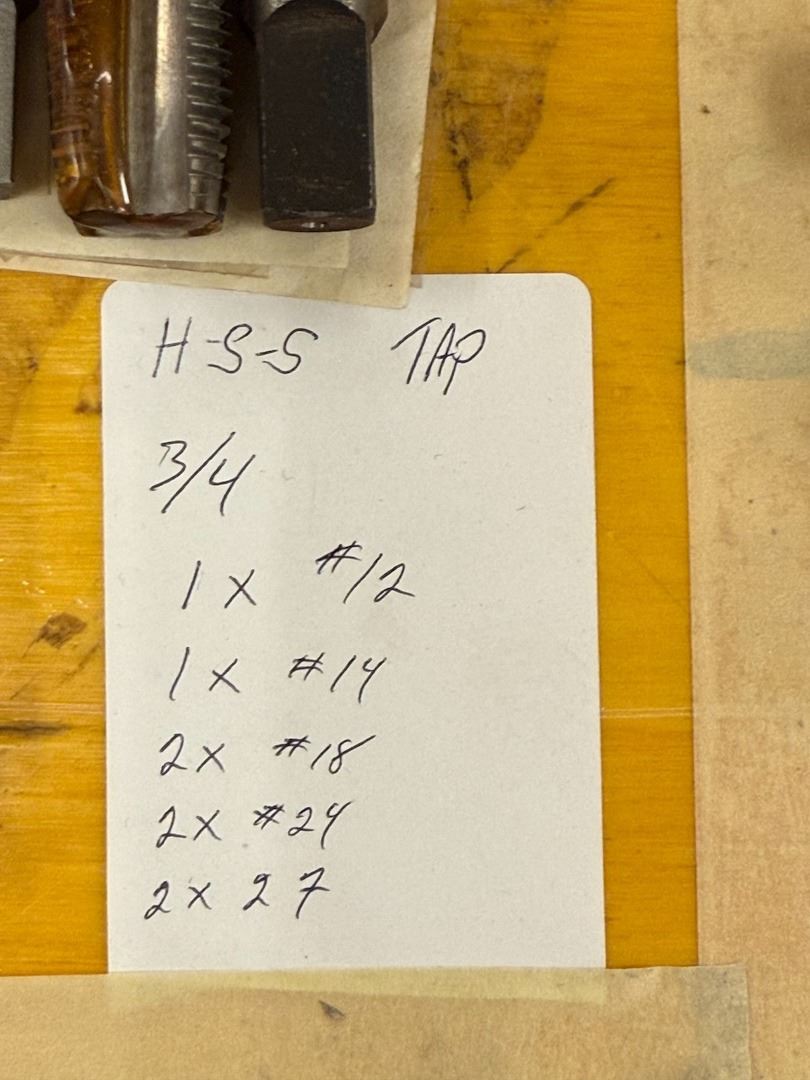 H-S-S TAP
3/4
1 x #12
1 x #14
2x #18
2x #24
2 x 27